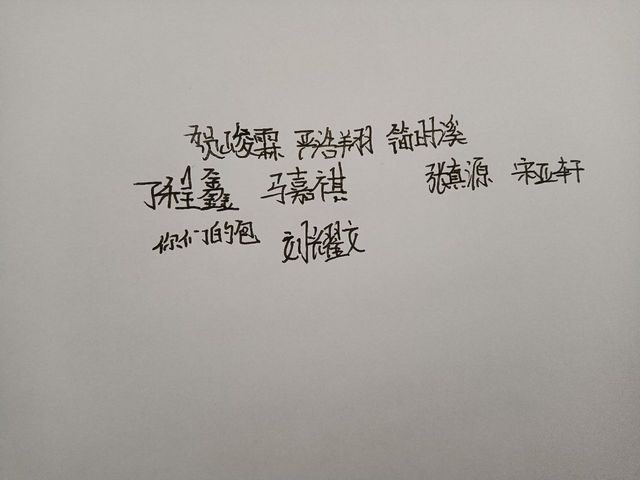 贺峻霖 严浩翔 简时溪
丁程鑫 马嘉祺 张真源 宋亚轩
你们的包 刘耀文